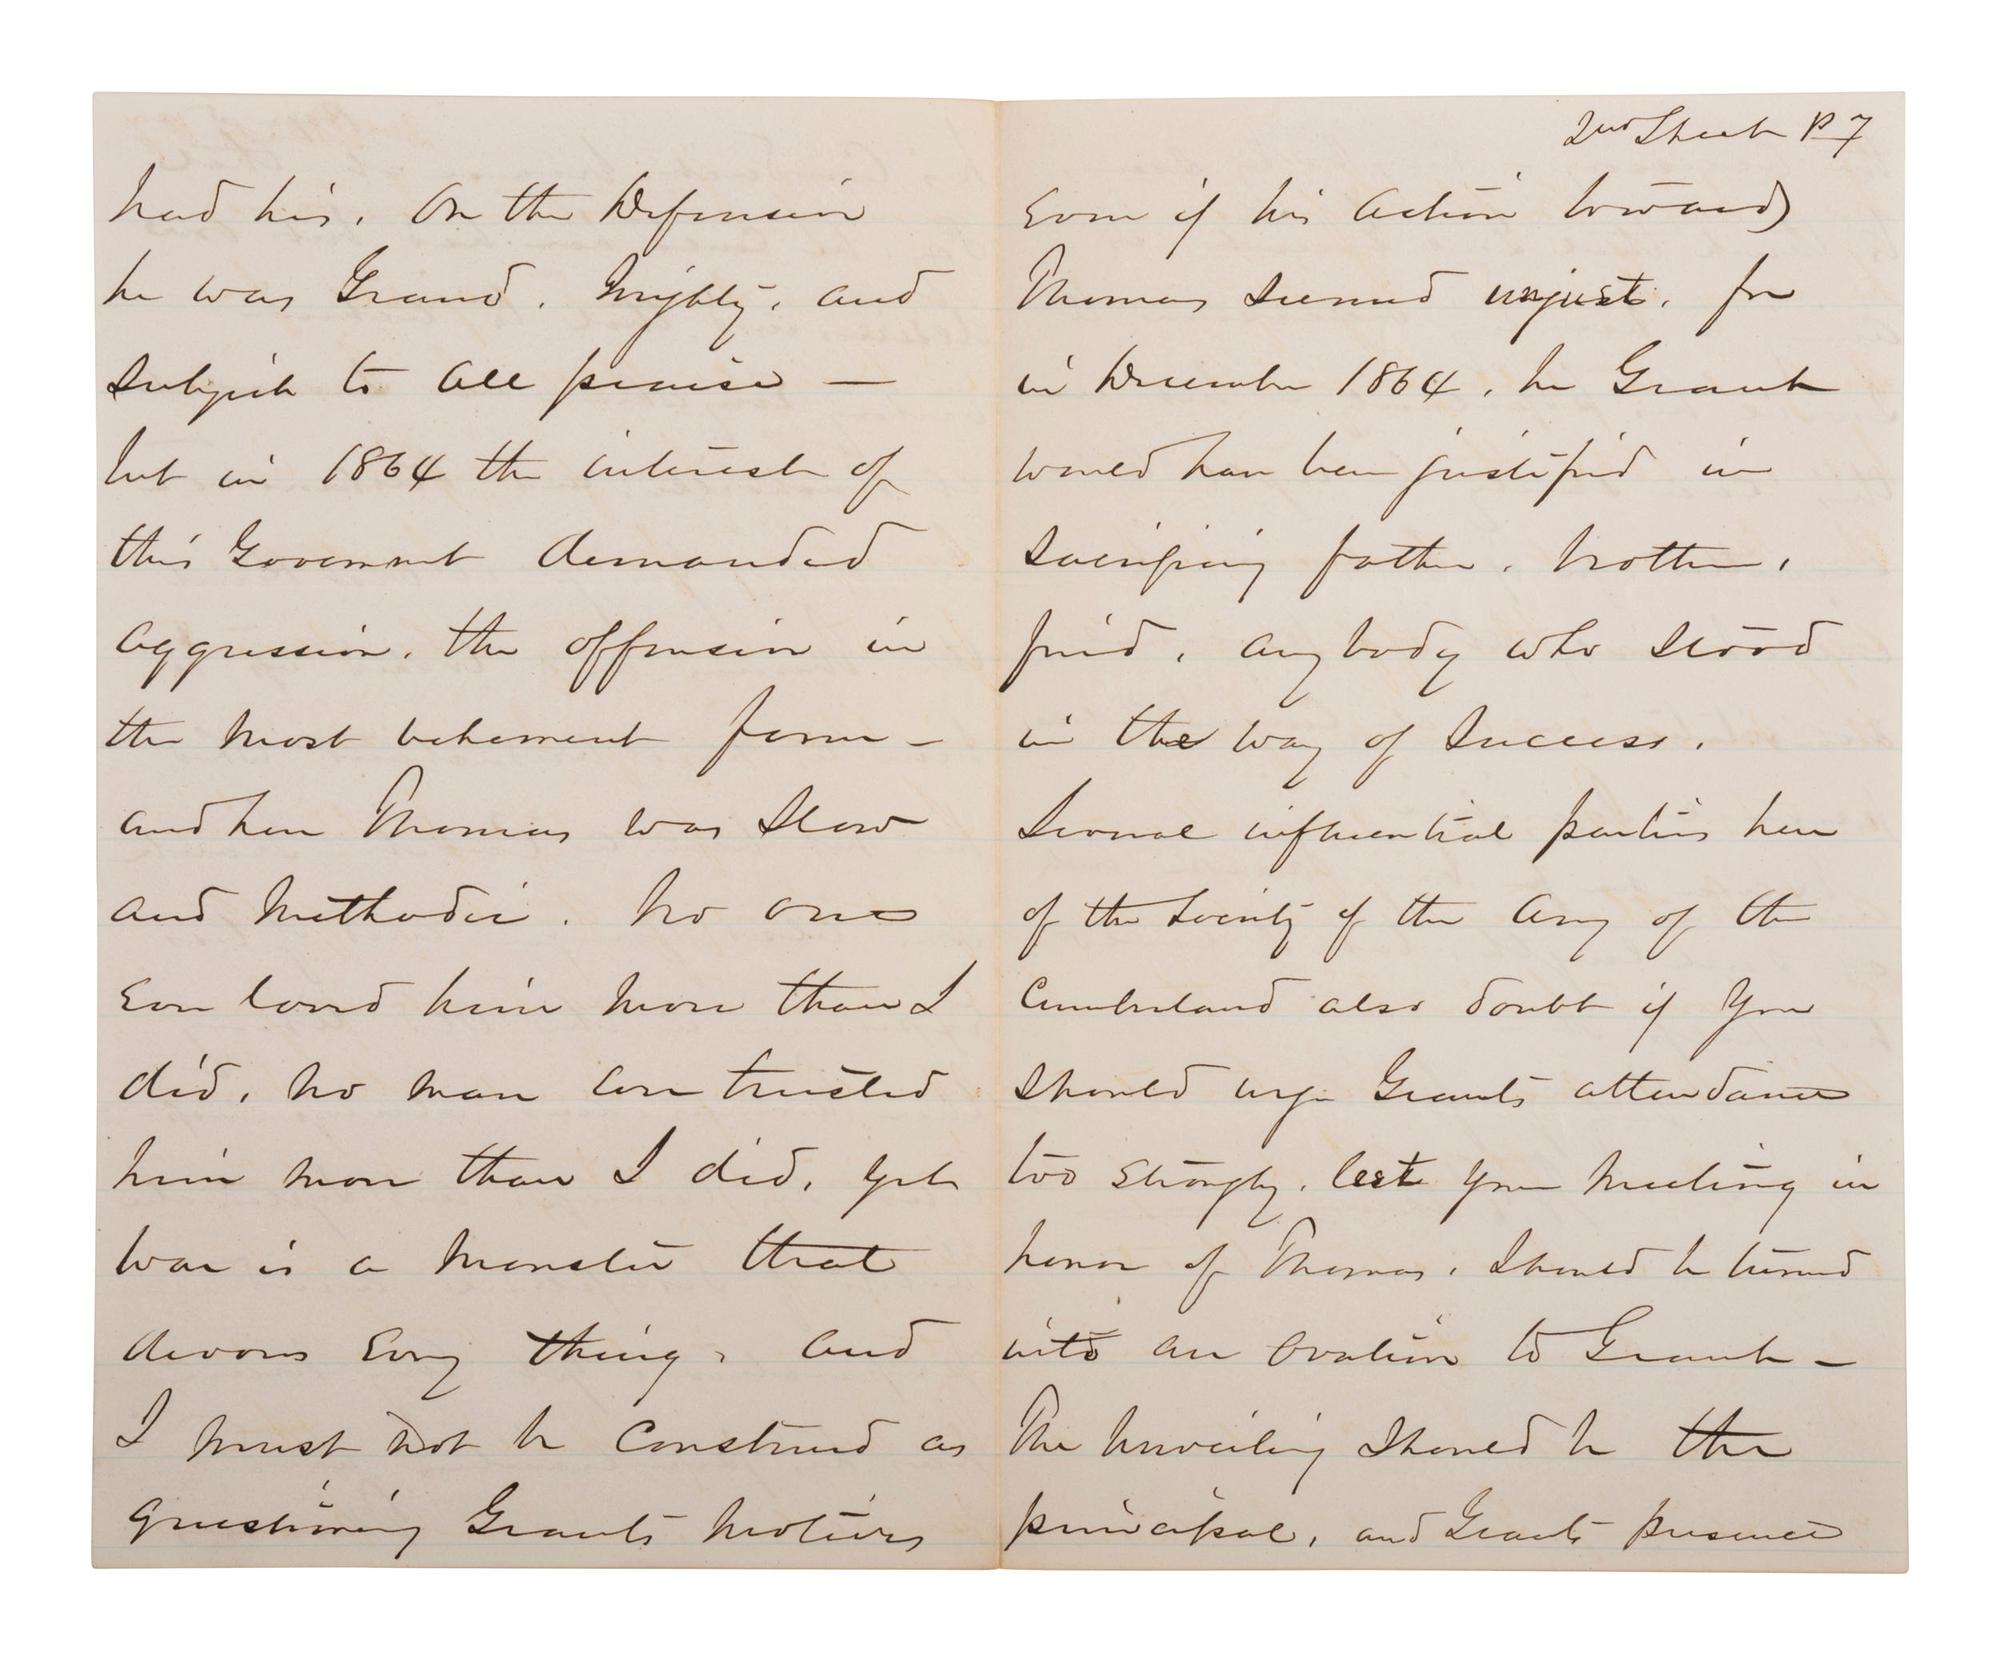 had his. On the Defensive
he was Grand. Mighty, and
subject to all praise —
but in 1864 the interest of
this Government demanded
aggression. the offensive in
the most vehement form —
and here Thomas was slow
and Methodic. No one
Ever loved him more than I
did, no man ever trusted
him more than I did, yet
War is a Monster that
devours Every thing, and
I must not be construed as
questioning Grants Motives
2nd Sheet P 7
Even if his action towards
Thomas seemed unjust. for
in December 1864, he Grant
would have been justified in
sacrificing father, brother,
friend, anybody who stood
in the way of success.
Several influential parties here
of the Society of the Army of the
Cumberland also doubt if you
should urge Grants attendance
too strongly, lest your Meeting in
honor of Thomas, should be turned
into an ovation to Grant —
The Unveiling should be the
principal, and Grants presence